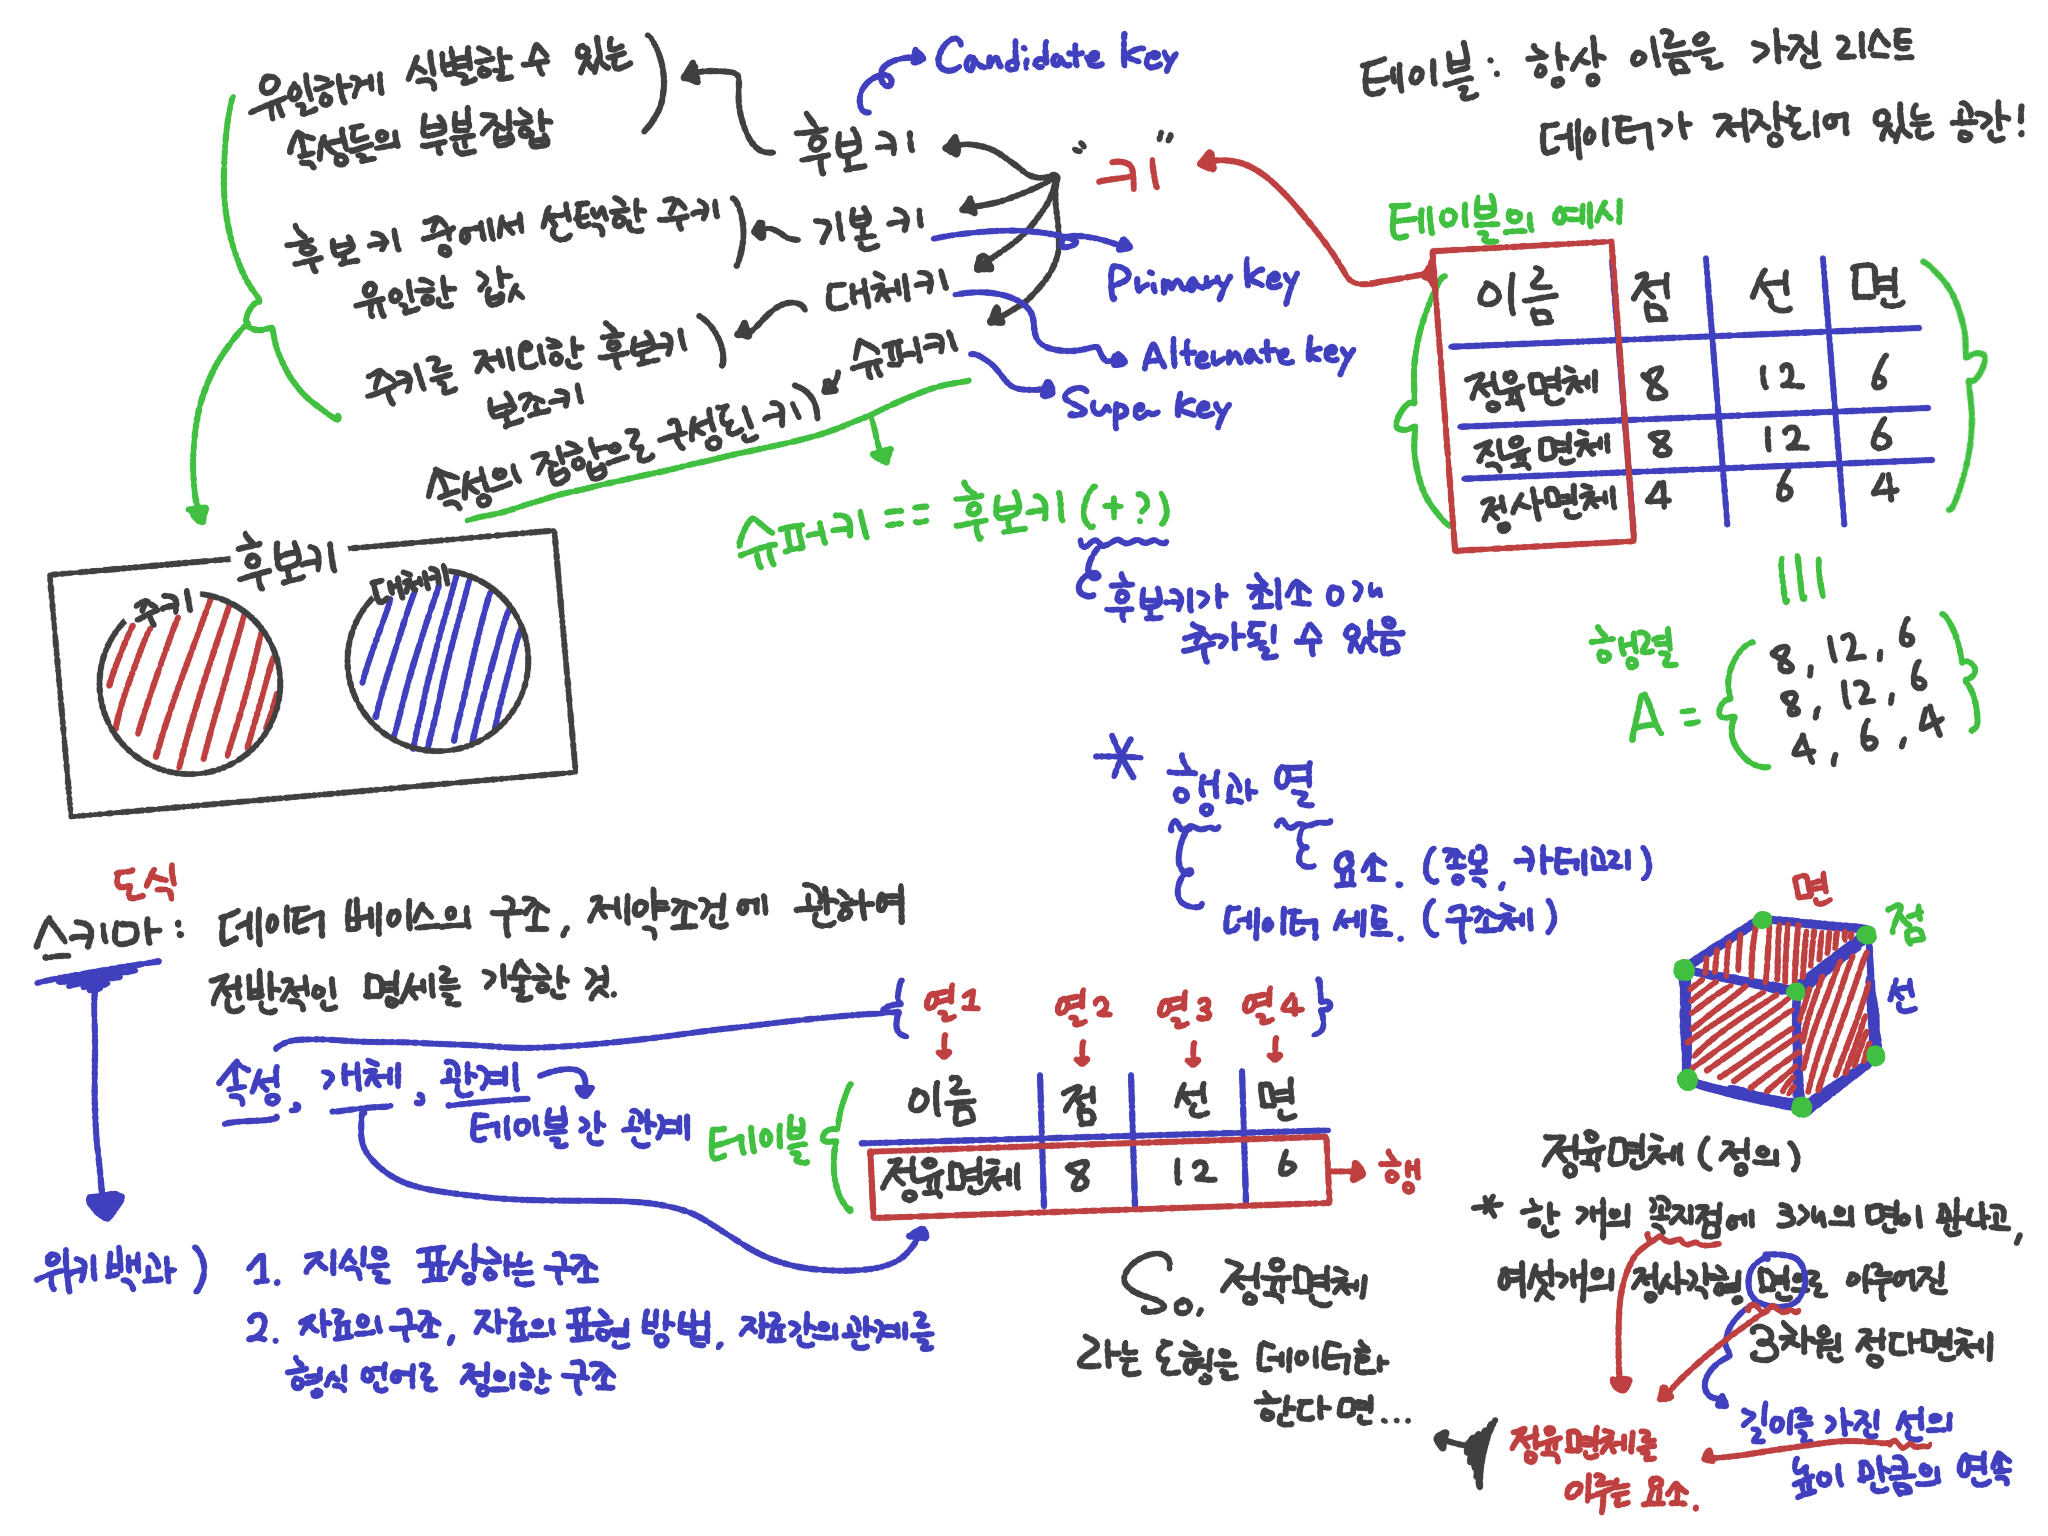 유일하게 식별할 수 있는
속성들의 부분집합
Candidate key
후보키
"키"
후보키 중에서 선택한 주키
유일한 값
기본키
Primary key
대체키
주키를 제외한 후보키
보조키
Alternate key
슈퍼키
속성의 집합으로 구성된 키
Supe key
슈퍼키 == 후보키 (+?)
후보키가 최소 0개
추가될 수 있음
후보키
주키
대체키
테이블: 항상 이름을 가진 리스트
데이터가 저장되어 있는 공간!
테이블의 예시
이름 점 선 면
정육면체 8 12 6
직육면체 8 12 6
정사면체 4 6 4
행렬
A =
8, 12, 6
8, 12, 6
4, 6, 4
* 행과 열
요소. (종목, 카테고리)
데이터 세트. (구조체)
도식
스키마: 데이터 베이스의 구조, 제약조건에 관하여
전반적인 명세를 기술한 것.
속성, 개체, 관계
테이블 간 관계
위키백과) 1. 지식을 표상하는 구조
2. 자료의 구조, 자료의 표현 방법, 자료간의 관계를
형식 언어로 정의한 구조
열1 열2 열3 열4
테이블
이름 점 선 면
정육면체 8 12 6
행
So, 정육면체
라는 도형은 데이터화
한다면...
면
점
선
정육면체 (정의)
* 한 개의 꼭지점에 3개의 면이 만나고,
여섯개의 정사각형 면으로 이루어진
3차원 정다면체
길이를 가진 선의
높이 만큼의 연속
정육면체를
이루는 요소.